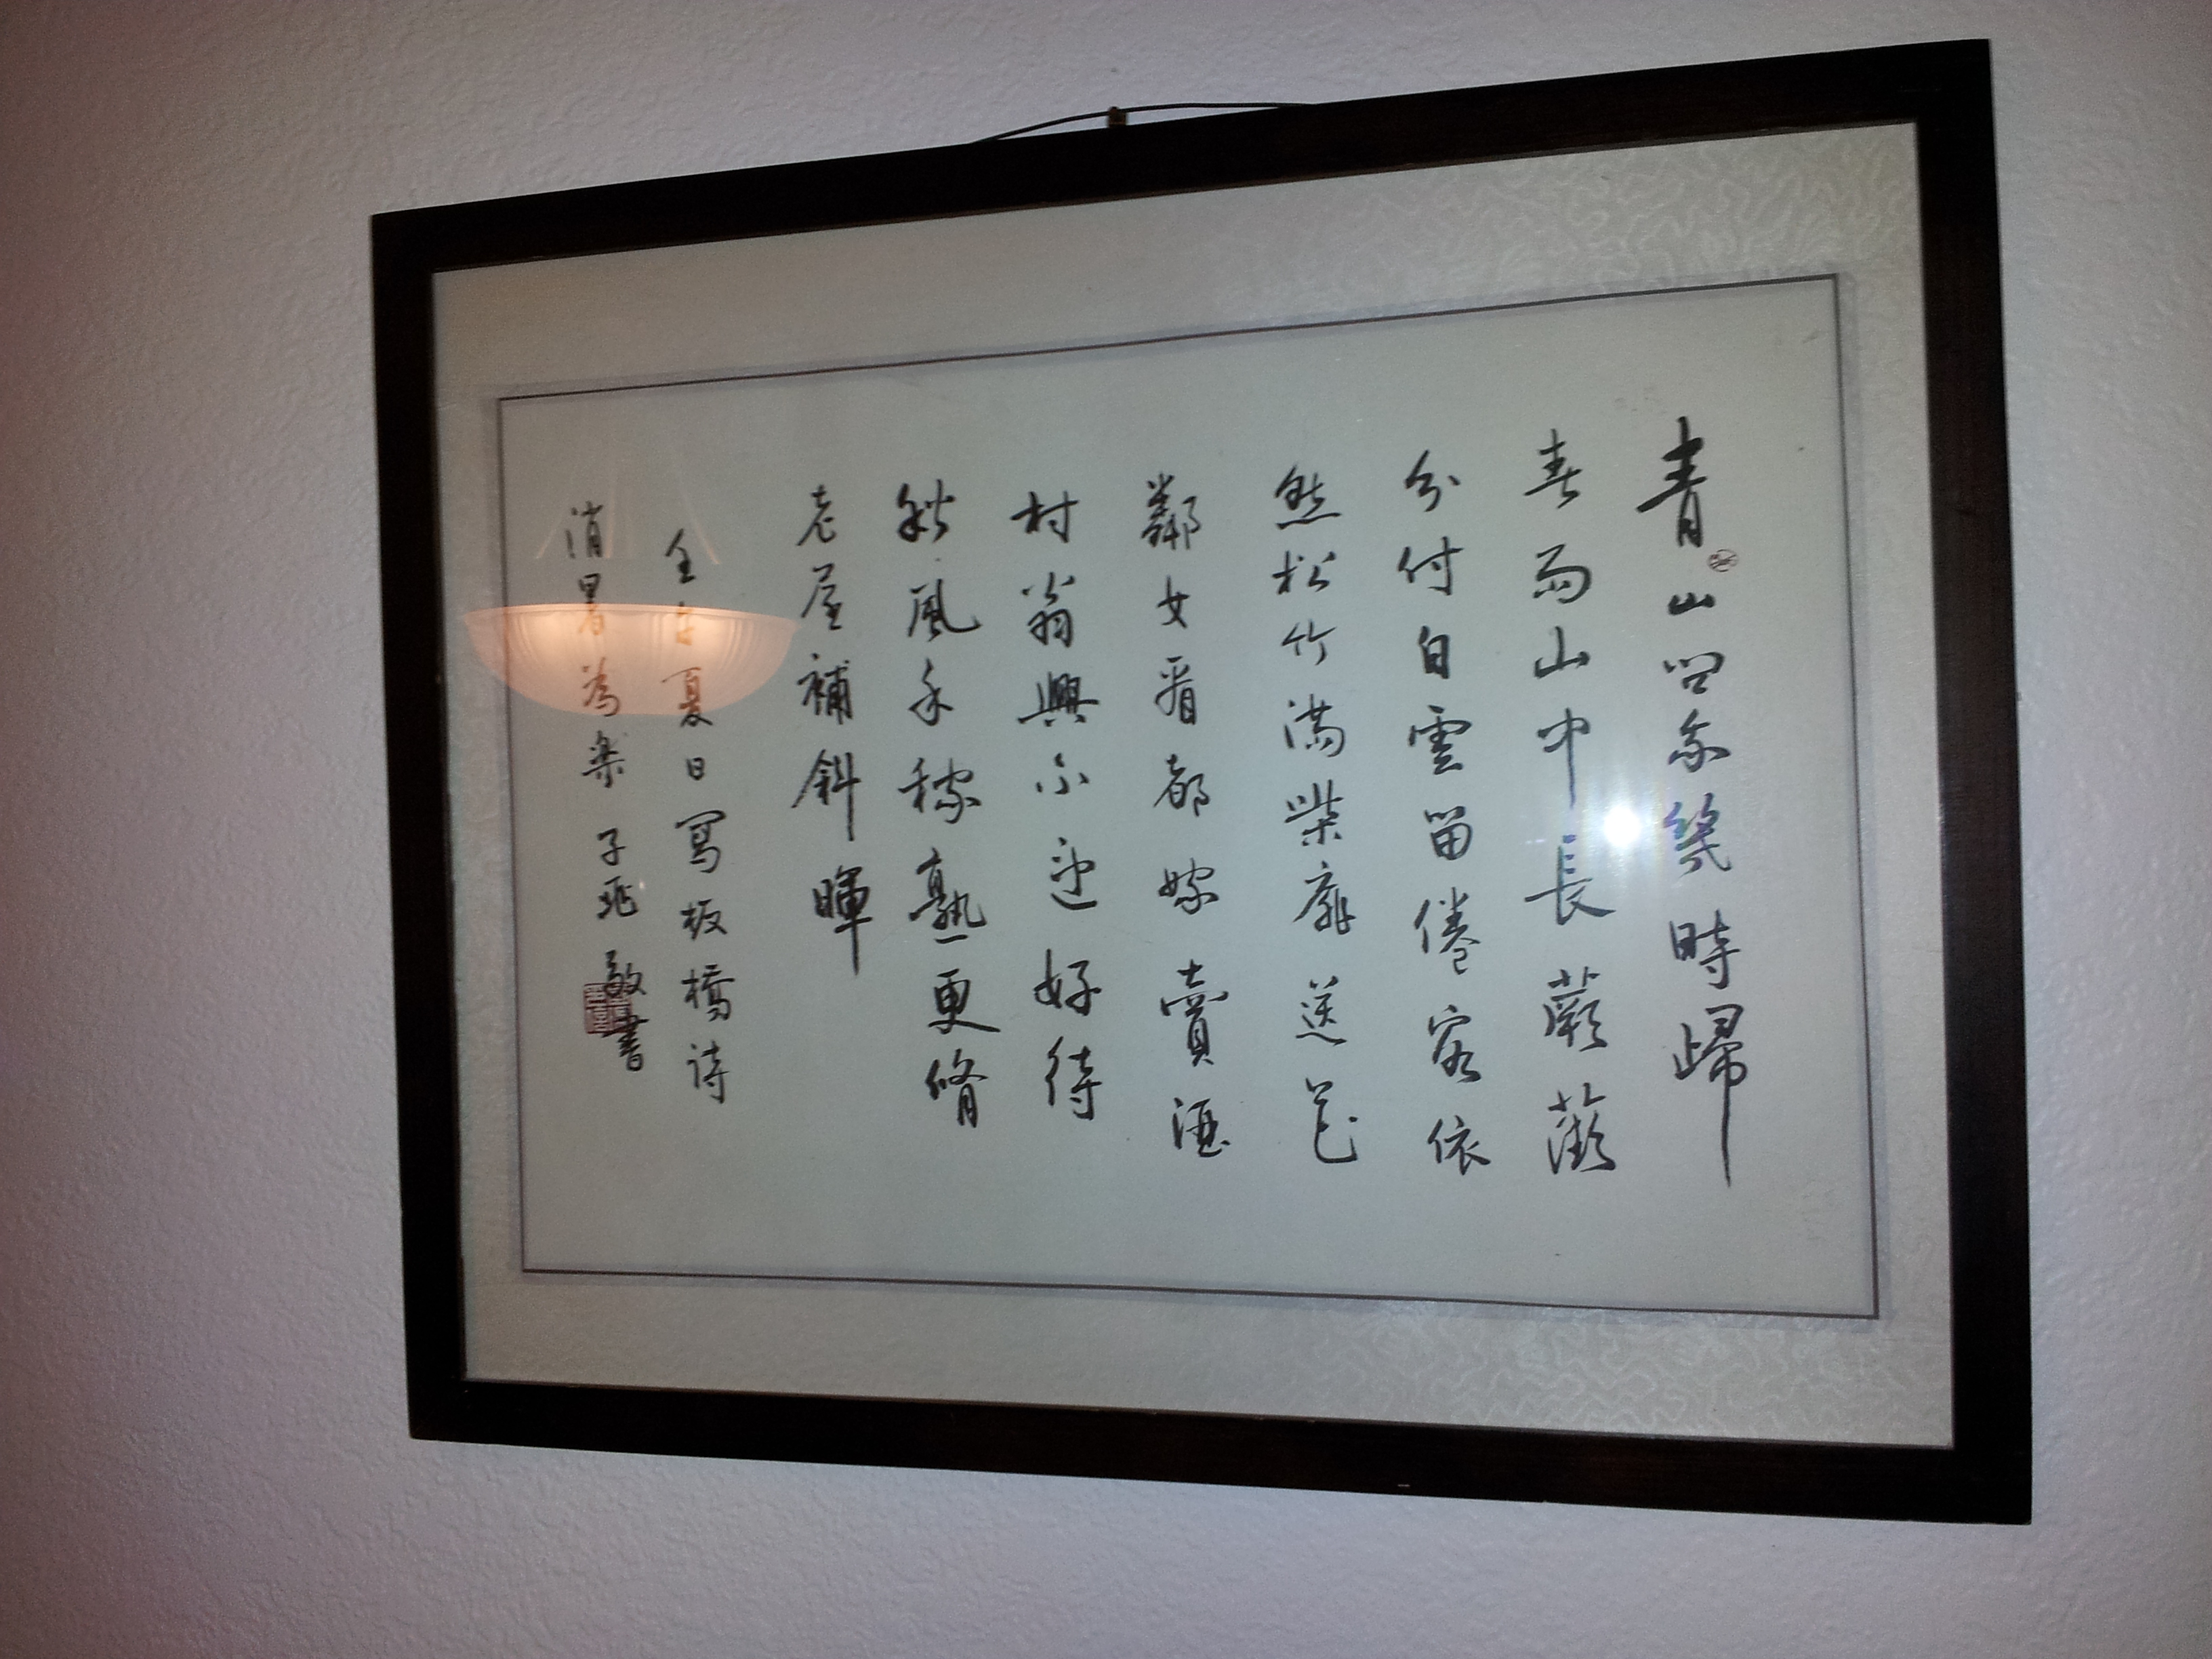 青山問尔幾時歸
春雨山中長蕨薇
分付白雲留倦客依
然松竹滿柴扉送花
鄰女看都嫁賣酒
村翁興不違好待
秋風禾稼熟更脩
老屋補斜暉
夏日寫板橋詩
消暑為樂 子敬書